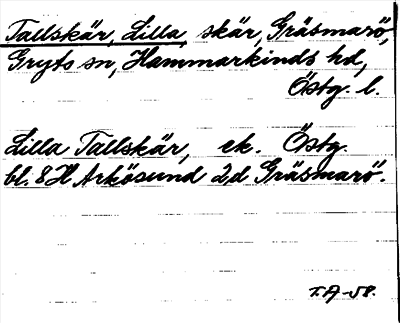 Tallskär, Lilla, skär, Gräsmarö,
Gryts sn, Hammarkinds hd,
Östg. l.
Lilla Tallskär, ek. Östg.
bl. 8 H Arkösund 2,d Gräsmarö.
T.A-58.